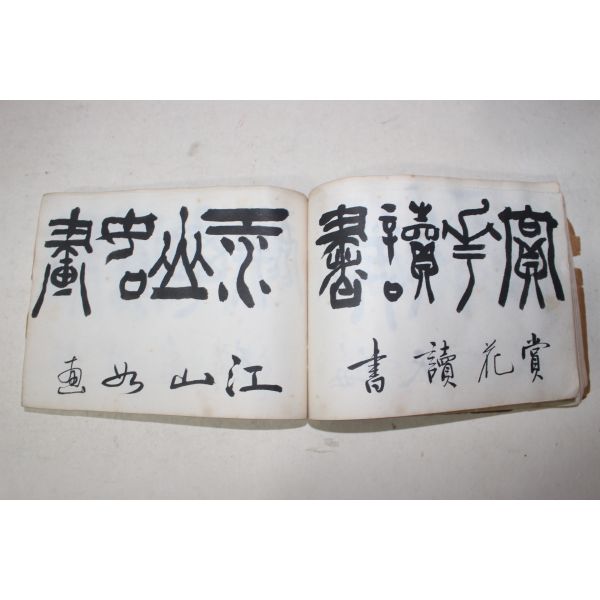 賞花讀書
賞花讀書
江山如畫
江山如画